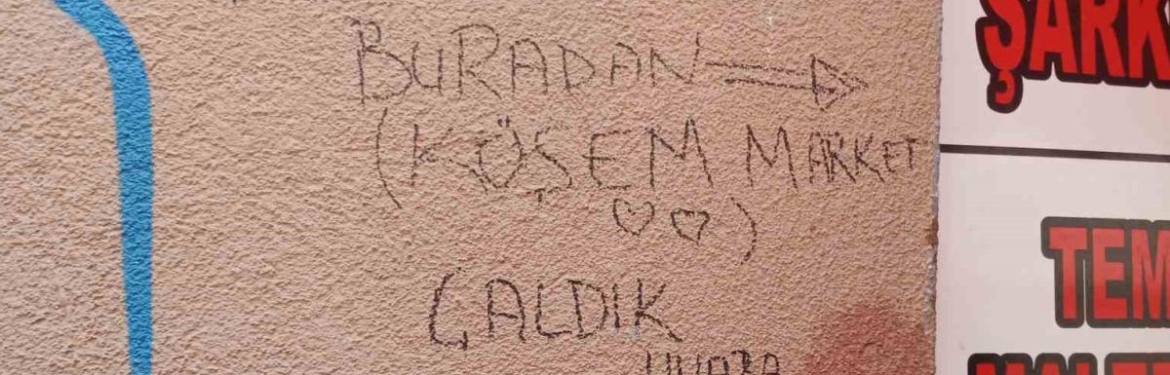 BURADAN
(KÖŞEM MARKET
)
ÇALDIK
ŞARK
TEM